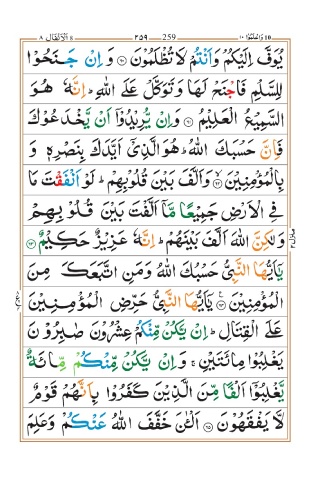 ٨ الانفال ٨ ٢٥٩ 259 واعلموا ١٠
يُوَفَّ اِلَيْكُمْ وَاَنْتُمْ لَا تُظْلَمُوْنَ ۝٦٠ وَ اِنْ جَنَحُوْا
لِلسَّلْمِ فَاجْنَحْ لَهَا وَتَوَكَّلْ عَلَى اللّٰهِ ؕ اِنَّهٗ هُوَ
السَّمِيْعُ الْعَلِيْمُ ۝٦١ وَاِنْ يُّرِيْدُوْۤا اَنْ يَّخْدَعُوْكَ
فَاِنَّ حَسْبَكَ اللّٰهُ ؕ هُوَ الَّذِيْۤ اَيَّدَكَ بِنَصْرِهٖ وَ
بِالْمُؤْمِنِيْنَ ۝٦٢ وَاَلَّفَ بَيْنَ قُلُوْبِهِمْ ؕ لَوْ اَنْفَقْتَ مَا
فِى الْاَرْضِ جَمِيْعًا مَّاۤ اَلَّفْتَ بَيْنَ قُلُوْبِهِمْ
وَلٰكِنَّ اللّٰهَ اَلَّفَ بَيْنَهُمْ ؕ اِنَّهٗ عَزِيْزٌ حَكِيْمٌ ۝٦٣
يٰۤاَيُّهَا النَّبِيُّ حَسْبُكَ اللّٰهُ وَمَنِ اتَّبَعَكَ مِنَ
الْمُؤْمِنِيْنَ ۝٦٤ يٰۤاَيُّهَا النَّبِيُّ حَرِّضِ الْمُؤْمِنِيْنَ
عَلَى الْقِتَالِ ؕ اِنْ يَّكُنْ مِّنْكُمْ عِشْرُوْنَ صٰبِرُوْنَ
يَغْلِبُوْا مِائَتَيْنِ ۚ وَاِنْ يَّكُنْ مِّنْكُمْ مِّائَةٌ
يَّغْلِبُوْۤا اَلْفًا مِّنَ الَّذِيْنَ كَفَرُوْا بِاَنَّهُمْ قَوْمٌ
لَّا يَفْقَهُوْنَ ۝٦٥ اَلْـٰٔنَ خَفَّفَ اللّٰهُ عَنْكُمْ وَعَلِمَ